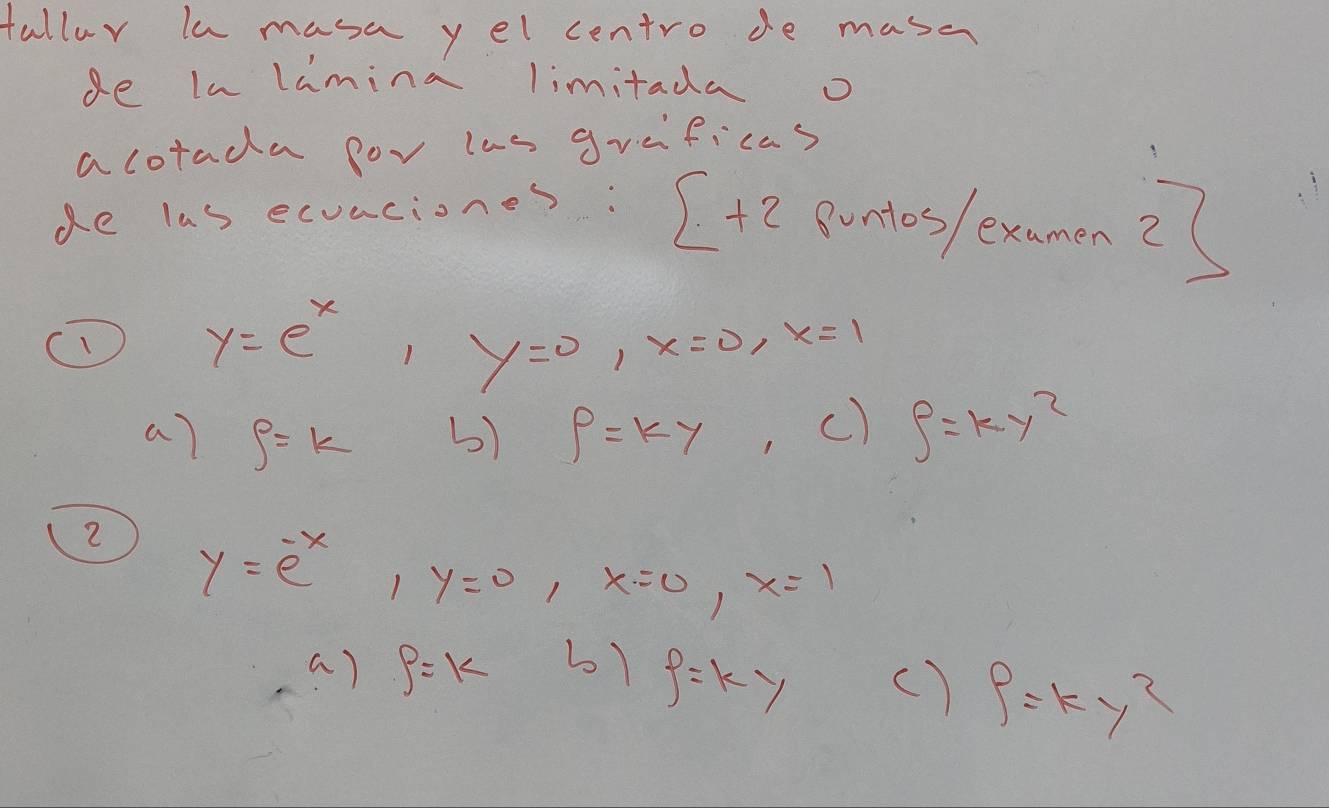 Hallar la masa y el centro de masa
de la lámina limitada o
acotada por las gráficas
de las ecuaciones : [+2 puntos/examen 2]
① y=e^x , y=0, x=0, x=1
a) ρ=k b) ρ=ky , c) ρ=ky²
② y=e^-x , y=0, x=0, x=1
a) ρ=k b) ρ=ky c) ρ=ky²